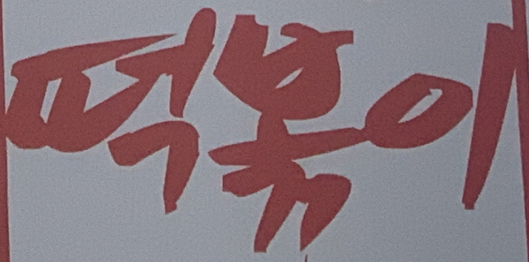 떡볶이